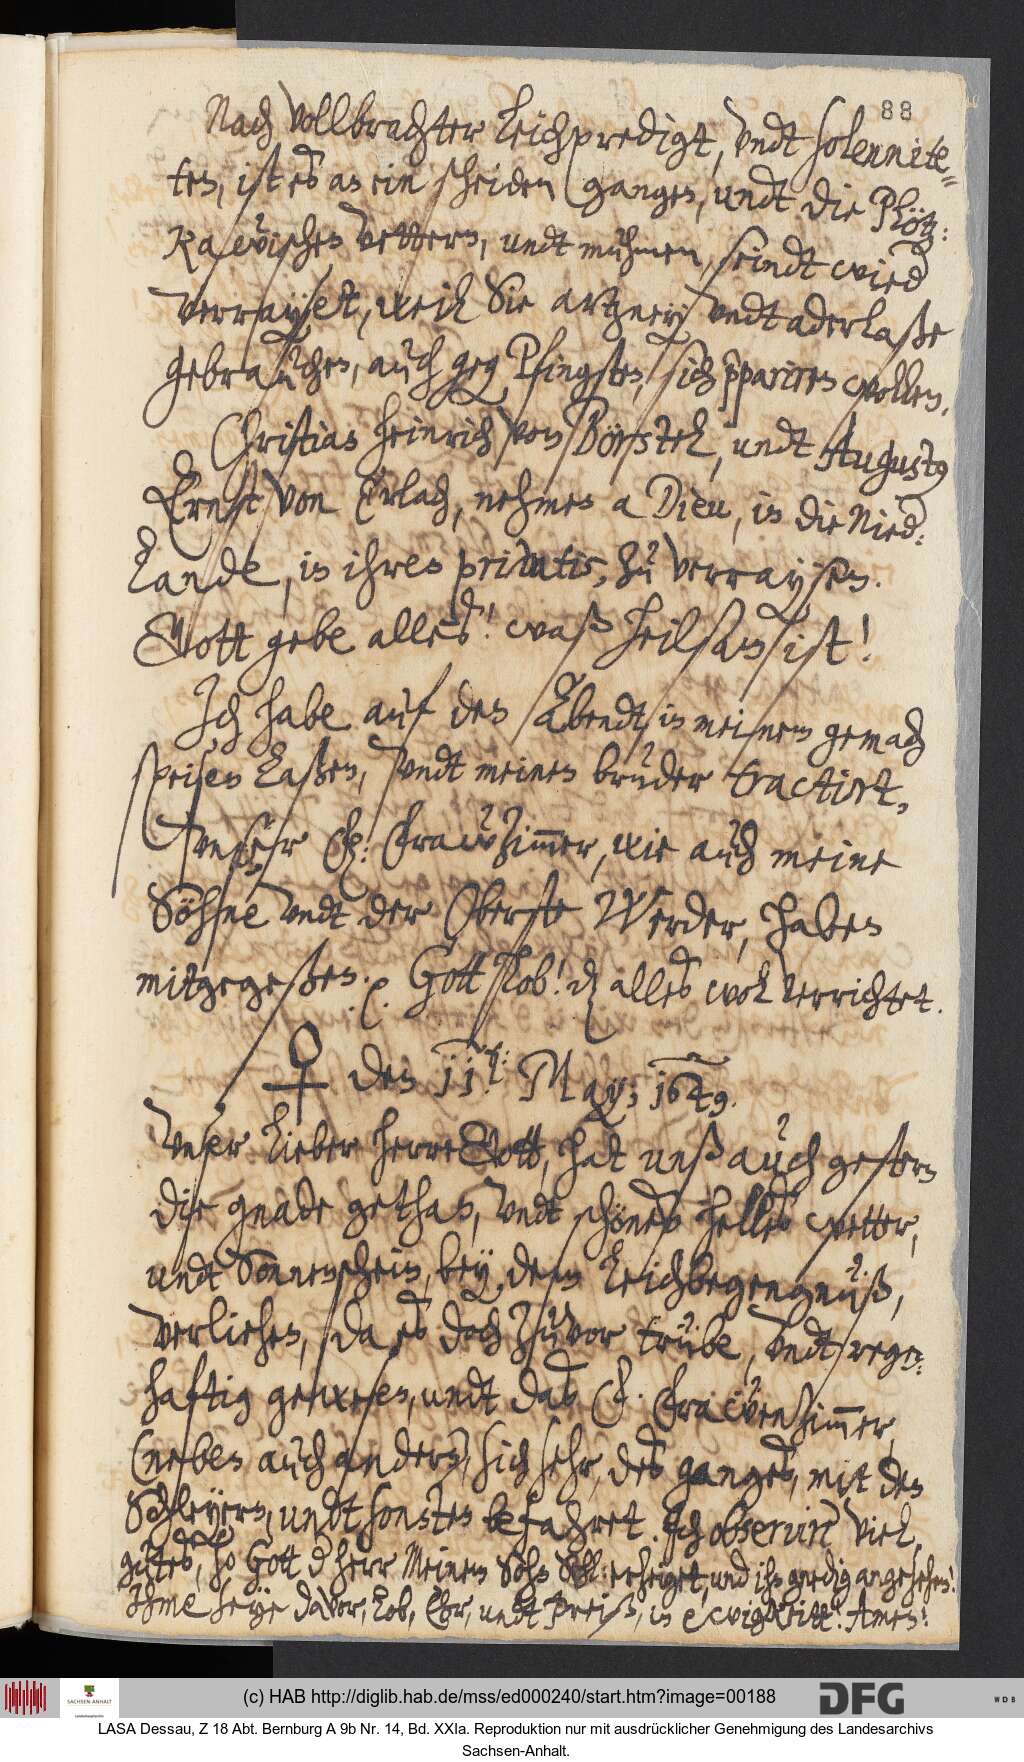 88
Nach vollbrachter Leichpredigt, undt solennite-
ten, ist es an ein scheiden gangen, undt die Plötz:
kawischen Vettern, undt muhmen, seindt wied
verrayset, weil Sie artzney undt aderlaße
gebrauchen, auch geg Pfingsten, sich ppariren wollen.
Christian Heinrich von Börstel, undt August9
Ernst von Erlach, nehmen a Dieu, in die Nied:
Lande, in ihren privatis, zu verraysen.
Gott gebe alles! waß heilsam ist!
Ich habe auf den Abendt in meinem gemach
speisen laßen, undt meinen bruder tractirt,
Unser Frawzimmer, wie auch meine
Söhne undt der Oberste Werder, haben
mitgegeßen. Gott lob! d alles wol verrichtet.
♀ den 11t: May; 1649.
Unser lieber Herre Gott, hat unß auch gestern
die gnade gethan, undt schönes helles wetter,
undt Sonnenschein, bey dem Leichbegengnuß,
verliehen, da es doch zuvor trübe, undt regen:
haftig gewesen, undt das F. Frawenzimmer,
(neben auch andern) sich sehr, des ganges, mit den
Schleyern, undt sonsten befahret. Ich observir viel
gutes, so Gott d herr Meinem Sohn Sehl: erzeiget, und ihn gnedig angesehen!
Ihme seye davor, Lob, Ehr, undt Preiß, in ewigkeitt! Amen!
(c) HAB http://diglib.hab.de/mss/ed000240/start.htm?image=00188
SACHSEN-ANHALT
DFG
WDB
LASA Dessau, Z 18 Abt. Bernburg A 9b Nr. 14, Bd. XXIa. Reproduktion nur mit ausdrücklicher Genehmigung des Landesarchivs
Sachsen-Anhalt.